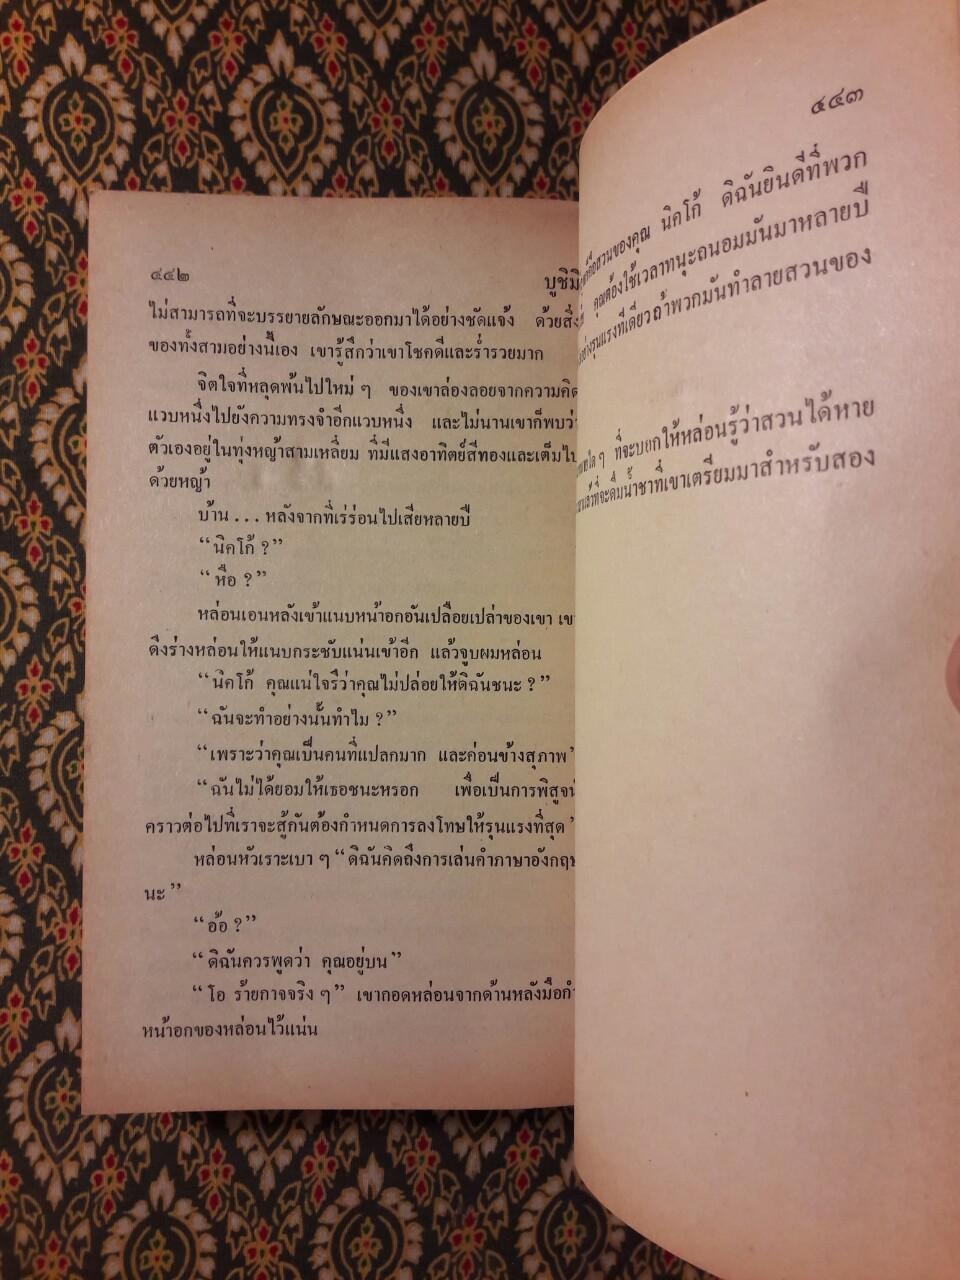 ๔๔๒
บูชิมิ
ไม่สามารถที่จะบรรยายลักษณะออกมาได้อย่างชัดแจ้ง ด้วยสิ่ง
ของทั้งสามอย่างนี้เอง เขารู้สึกว่าเขาโชคดีและร่ำรวยมาก
จิตใจที่หลุดพ้นไปใหม่ ๆ ของเขาล่องลอยจากความคิด
แวบหนึ่งไปยังความทรงจำอีกแวบหนึ่ง และไม่นานเขาก็พบว่า
ตัวเองอยู่ในทุ่งหญ้าสามเหลี่ยม ที่มีแสงอาทิตย์สีทองและเต็มไป
ด้วยหญ้า
บ้าน ... หลังจากที่เร่ร่อนไปเสียหลายปี
“นิคโก้ ?”
“หือ ?”
หล่อนเอนหลังเข้าแนบหน้าอกอันเปลือยเปล่าของเขา เขา
ดึงร่างหล่อนให้แนบกระชับแน่นเข้าอีก แล้วจูบผมหล่อน
“นิคโก้ คุณแน่ใจรึว่าคุณไม่ปล่อยให้ดิฉันชนะ ?”
“ฉันจะทำอย่างนั้นทำไม ?”
“เพราะว่าคุณเป็นคนที่แปลกมาก และค่อนข้างสุภาพ”
“ฉันไม่ได้ยอมให้เธอชนะหรอก เพื่อเป็นการพิสูจน์
คราวต่อไปที่เราจะสู้กันต้องกำหนดการลงโทษให้รุนแรงที่สุด”
หล่อนหัวเราะเบา ๆ “ดิฉันคิดถึงการเล่นคำภาษาอังกฤษ
นะ”
“อ้อ ?”
“ดิฉันควรพูดว่า คุณอยู่บน”
“โอ ร้ายกาจจริง ๆ” เขากอดหล่อนจากด้านหลังมือกำ
หน้าอกของหล่อนไว้แน่น
๔๔๓
คือสวนของคุณ นิคโก้ ดิฉันยินดีที่พวก
คุณต้องใช้เวลาทนุะถนอมมันมาหลายปี
อย่างรุนแรงทีเดียวถ้าพวกมันทำลายสวนของ
ใด ๆ ที่จะบอกให้หล่อนรู้ว่าสวนได้หาย
ที่จะดื่มน้ำชาที่เขาเตรียมมาสำหรับสอง